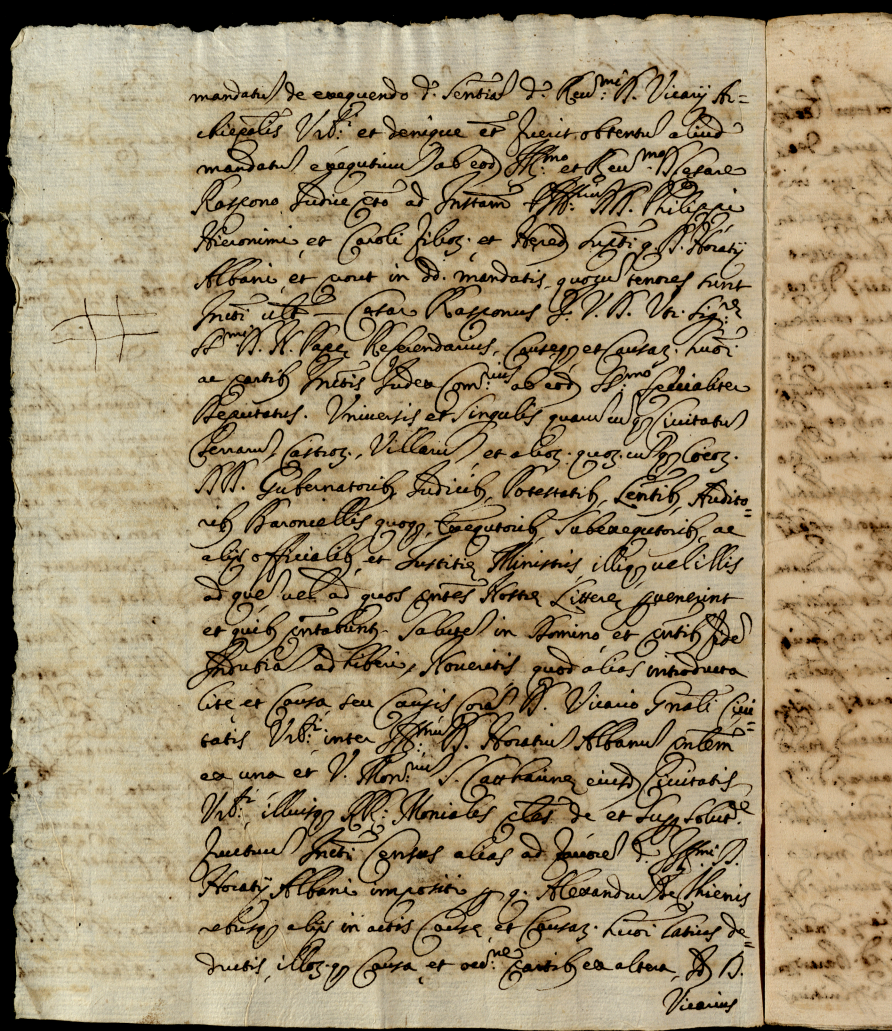 mandatu de exequendo d. Sentia d. Reu.mi D. Vicarij Ar=
chiepalis Urb.ti et denique et fuerit obtentu aliud
mandatu exequtiuu ab eod Ill.mo et Reu.mo D. Cesare
Raspono Judice ad Instam Ill. DD. Philippi
Hieronimi et Caroli et Hered q. D. Horatij
Albani et prout in dd. mandatis quoru tenores sunt
Infti ult — Cesar Rasponus J. V. D. Utr. Sig.re
SS.mi D. N. Pape Referendarius, Causeq et Causar. huoi
ac partib Inftis Judex Com.rius ab eod SS.mo specialiter
Deputatus. Universis et singulis quarucuq Ciuitatu
Terraru, Castror., Villaru et alior. quor.cuq Locor.
DD. Gubernatorib, Judicib, Potestatib, Locutentib, Audito=
rib Baroncellis quoq, Exequtorib, Subexequtorib, ac
alijs officialib, et Justitie Ministris illiq uel illis
ad que uel ad quos pntes Nostre Littere peruenerint
et quib pntabunt. Salute in Domino et pntib fide
Indubia adhiberi, Noueritis quod alias introducta
lite et Causa seu Causis Cora D. Vicario Gnali Ciui=
tatis Urb.ti inter Ill. D. Horatiu Albanu
ex una et V. Mon.riu S. Catharine eiusd Ciuitatis
Urb.ti illiusq RR. Moniales de et sup solut.ne
fructuu Infti Census alias ad fauore d. Ill.mi D.
Horatij Albani impositi p q. Alexandru de Thienis
rebusq alijs in actis Cause et Causar. huoi latius de=
ductis, illor.q Causa et partib ex altera, D.
Vicarius